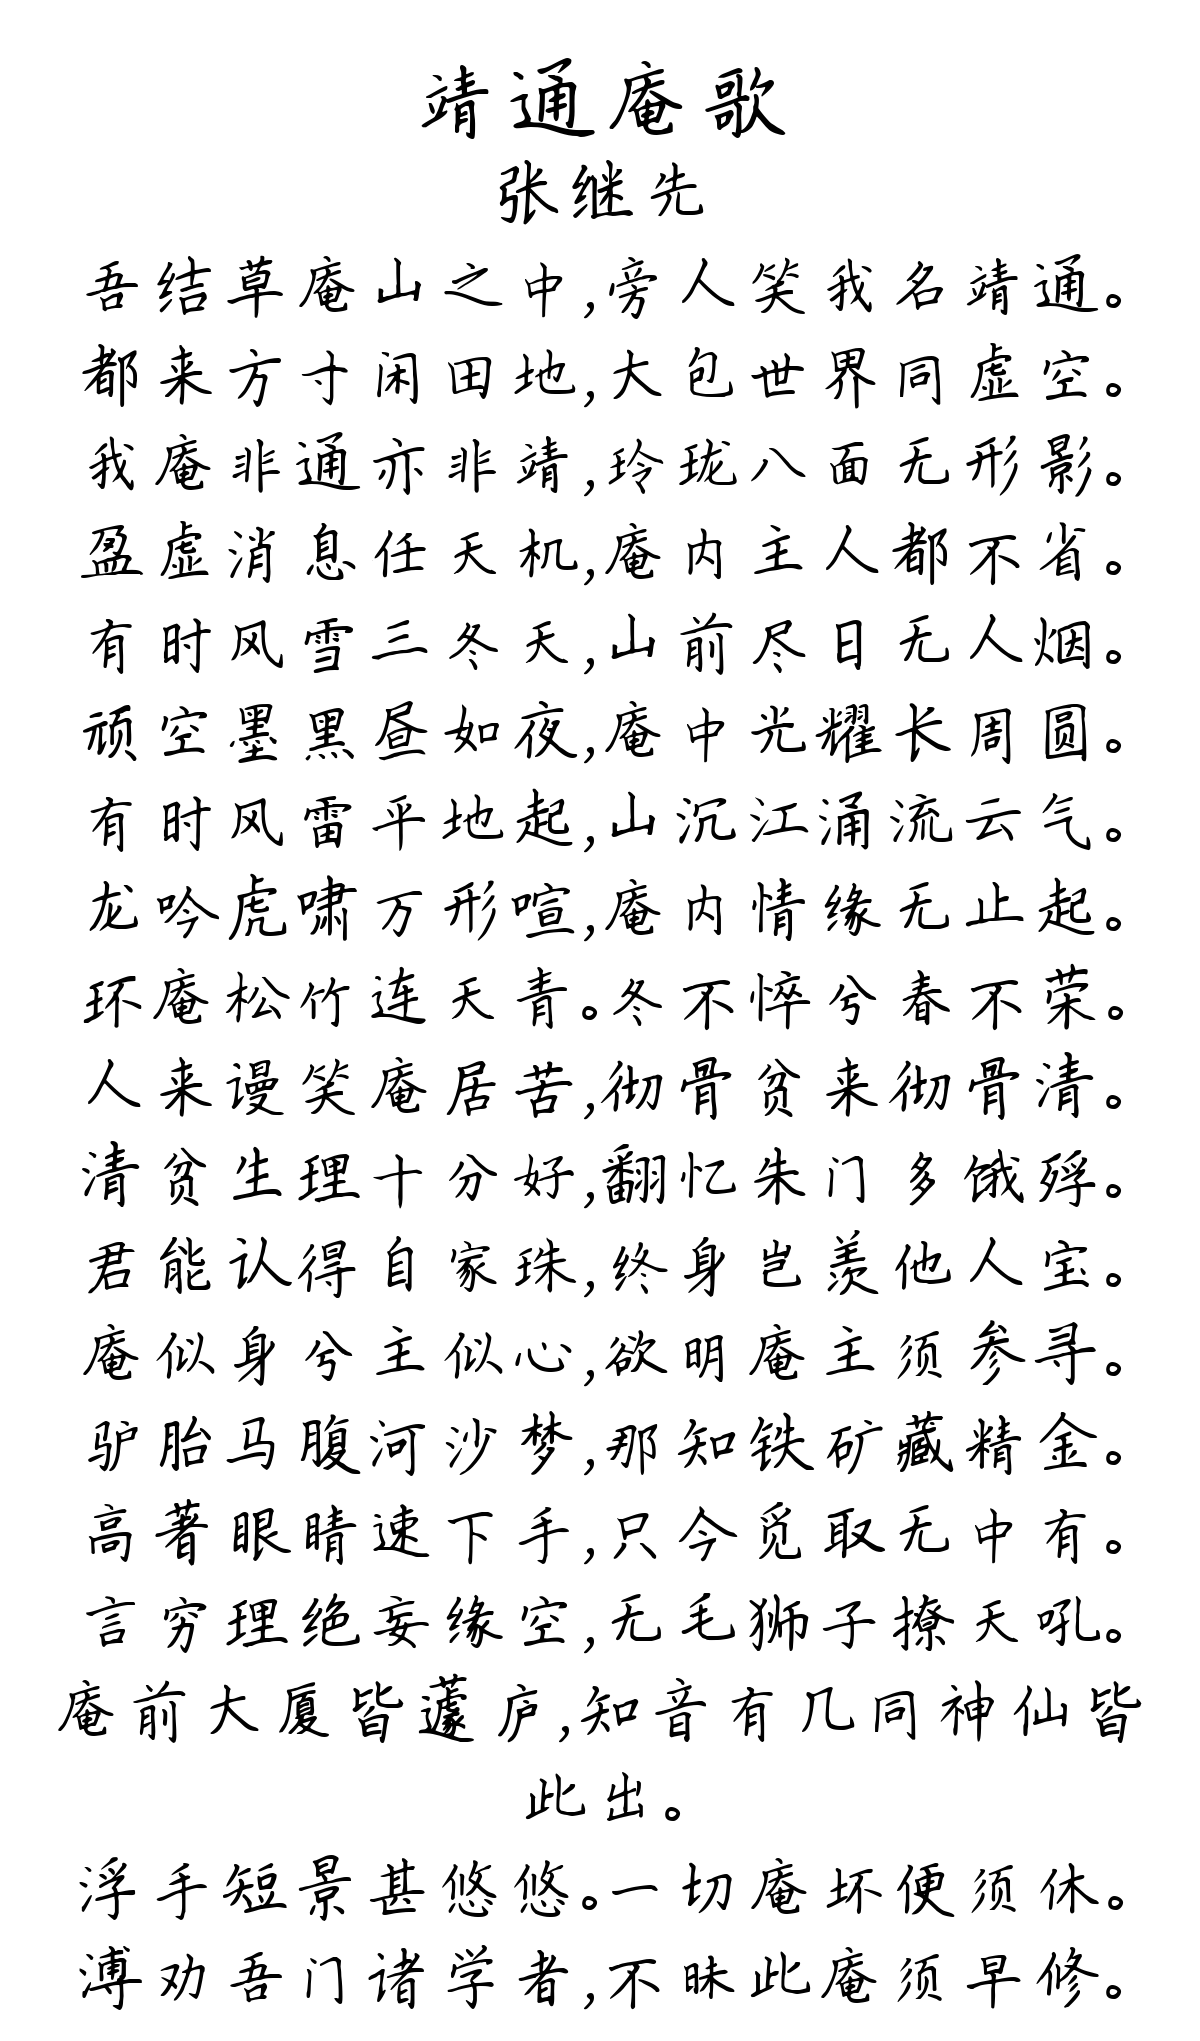 靖通庵歌
张继先
吾结草庵山之中,旁人笑我名靖通。
都来方寸闲田地,大包世界同虚空。
我庵非通亦非靖,玲珑八面无形影。
盈虚消息任天机,庵内主人都不省。
有时风雪三冬天,山前尽日无人烟。
顽空墨黑昼如夜,庵中光耀长周圆。
有时风雷平地起,山沉江涌流云气。
龙吟虎啸万形喧,庵内情缘无止起。
环庵松竹连天青。冬不悴兮春不荣。
人来谩笑庵居苦,彻骨贫来彻骨清。
清贫生理十分好,翻忆朱门多饿殍。
君能认得自家珠,终身岂羡他人宝。
庵似身兮主似心,欲明庵主须参寻。
驴胎马腹河沙梦,那知铁矿藏精金。
高著眼睛速下手,只今觅取无中有。
言穷理绝妄缘空,无毛狮子撩天吼。
庵前大厦皆蘧庐,知音有几同神仙皆
此出。
浮手短景甚悠悠。一切庵坏便须休。
溥劝吾门诸学者,不昧此庵须早修。